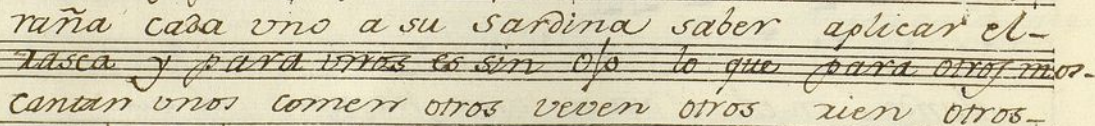 raña cada uno a su sardina saber aplicar el-
rasca y para unos es sin o/o lo que para otros mos-
cantan unos comen otros veven otros rien otros-